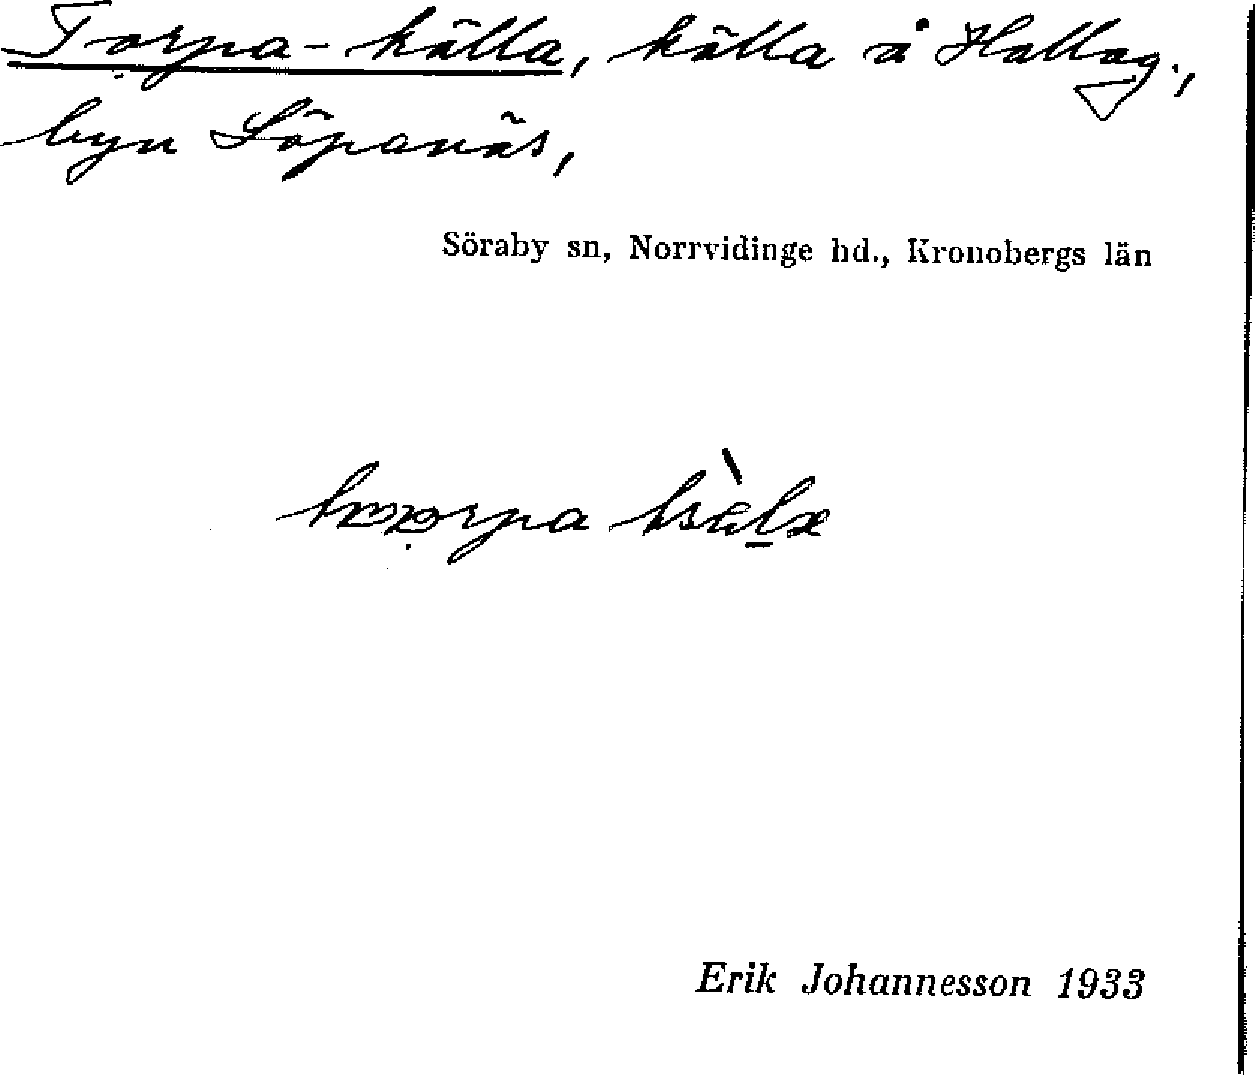 Torpa-källa, källa å Hallag.,
byn Löpanäs,
Söraby sn, Norrvidinge hd., Kronobergs län
Erik Johannesson 1933